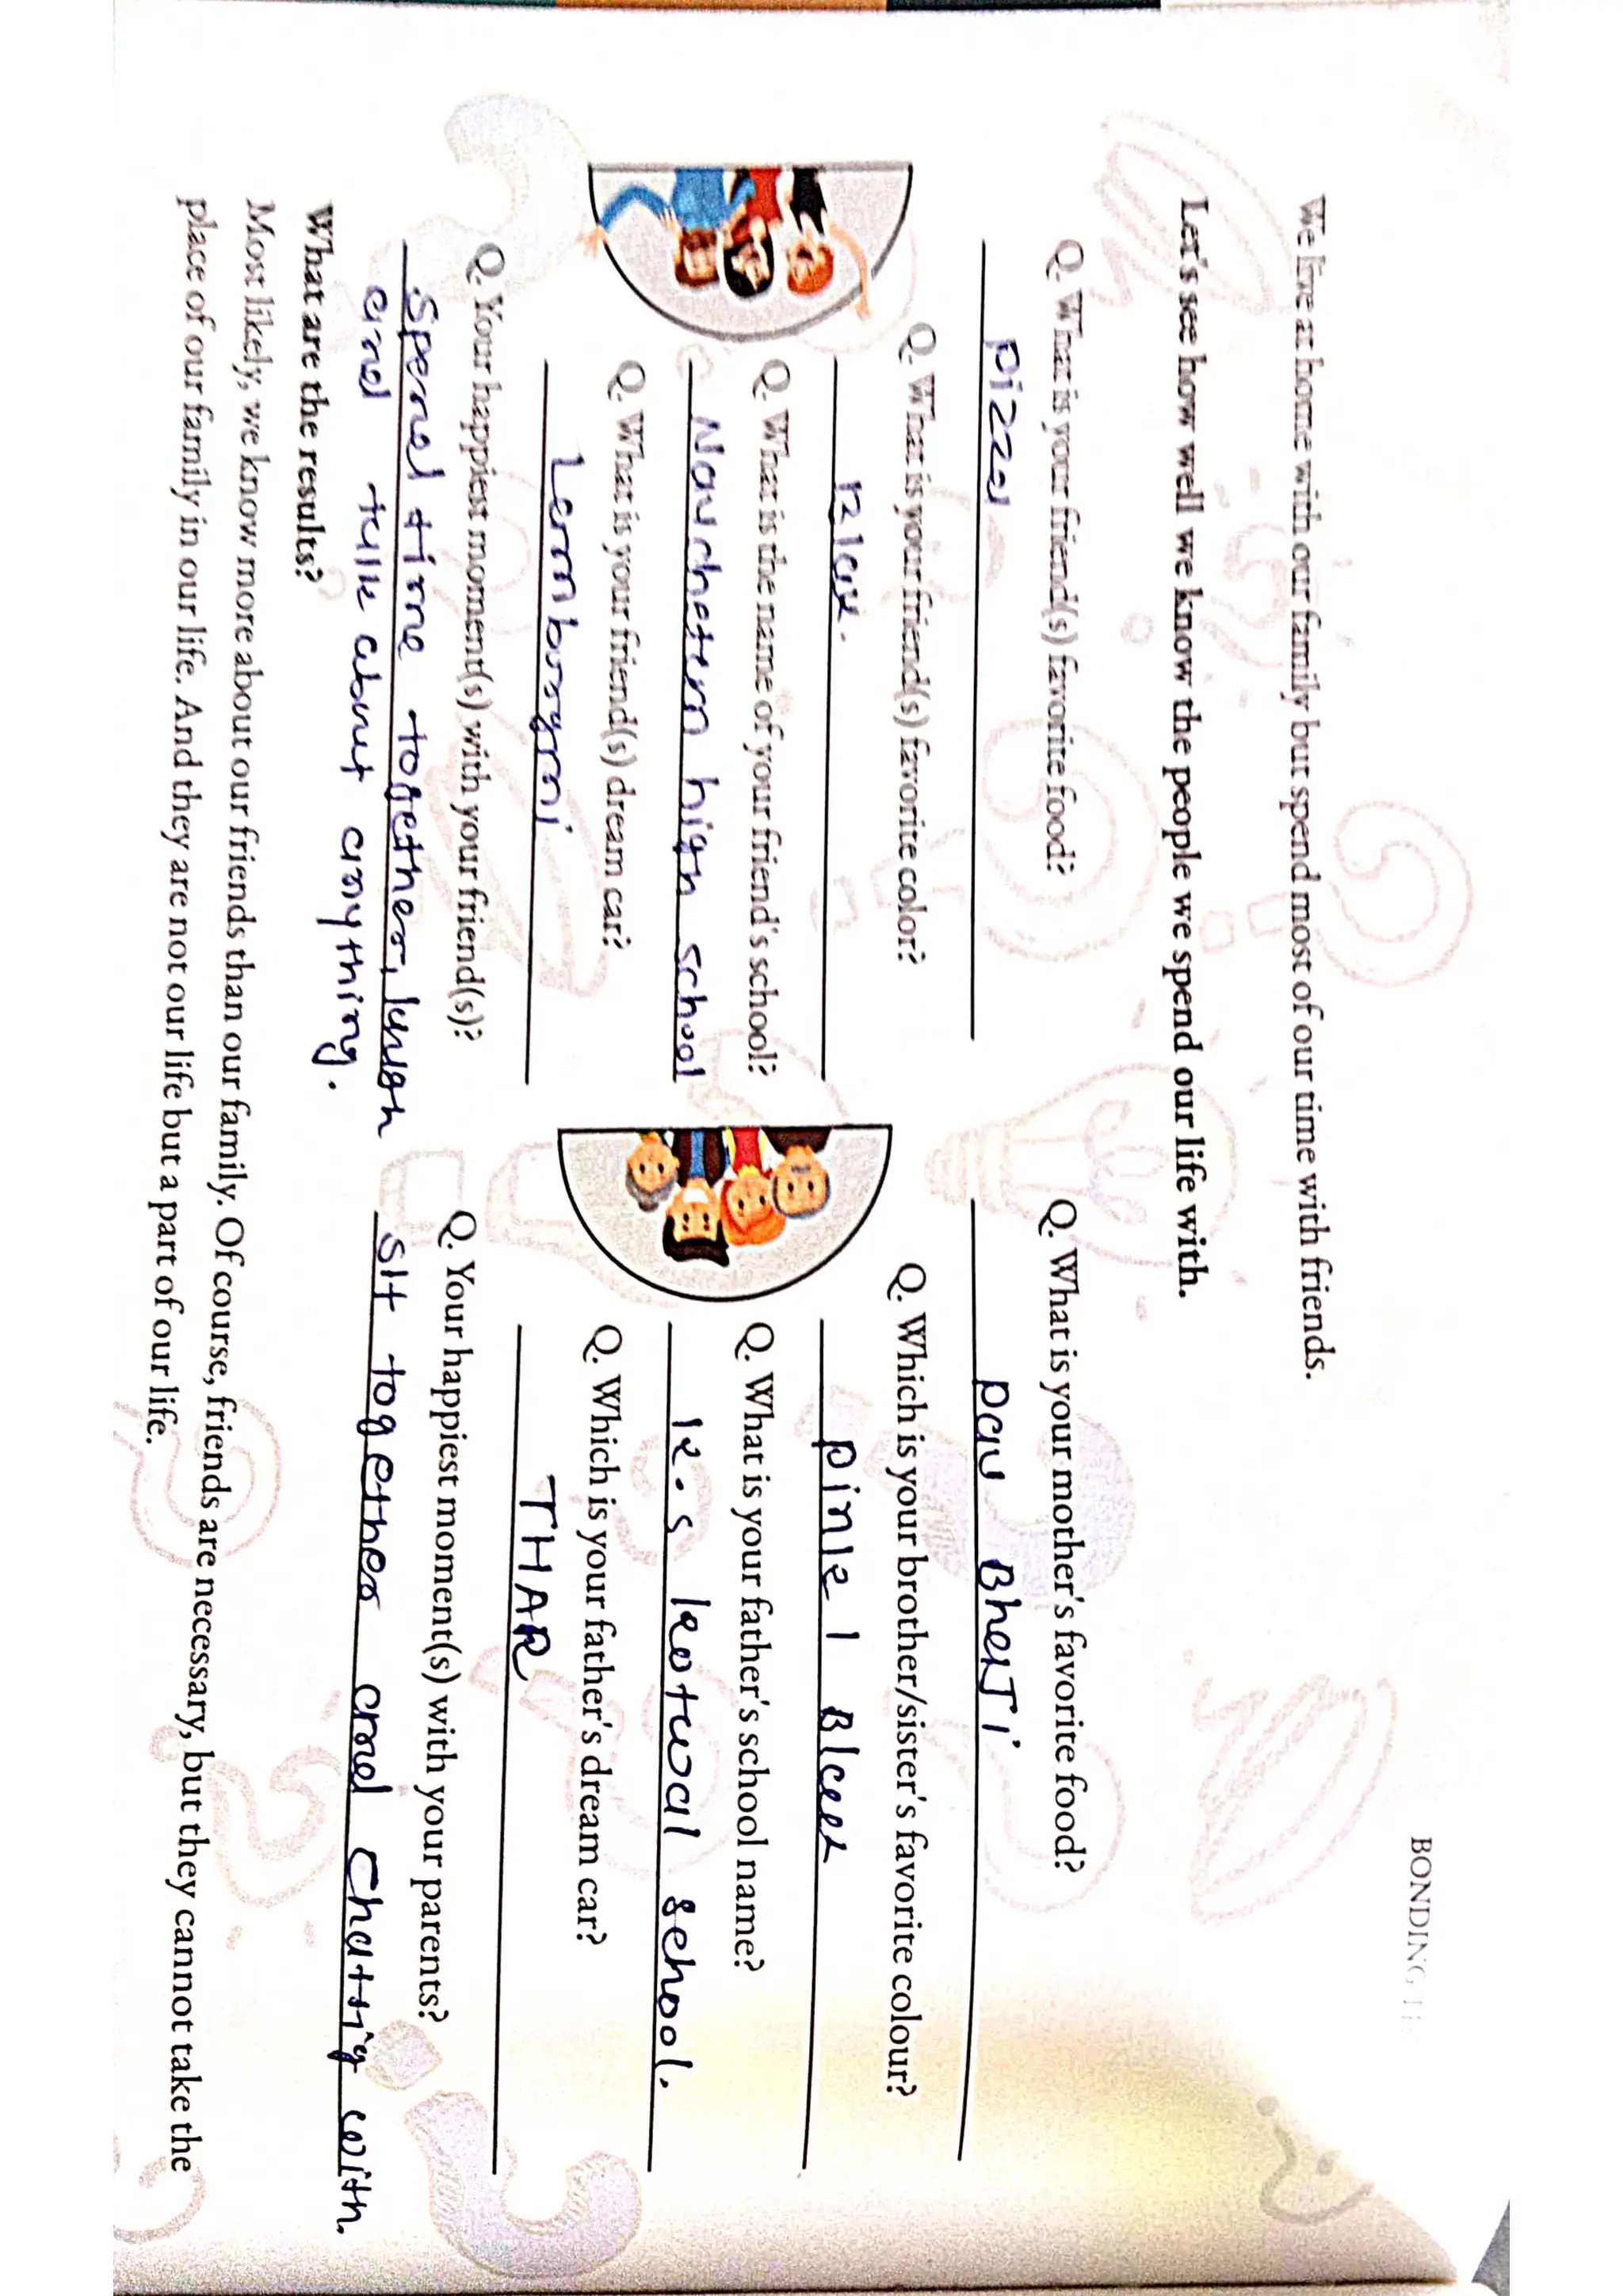 BONDING
We live at home with our family but spend most of our time with friends.
Let's see how well we know the people we spend our life with.
Q. What is your friend(s) favorite food?
pizza
Q. What is your friend(s) favorite color?
Q. What is the name of your friend's school?
high school
Q. What is your friend(s) dream car?
Q. Your happiest moment(s) with your friend(s)?
Spend time together, laugh
and talk about anything.
Q. What is your mother's favorite food?
pau BhaJi
Q. Which is your brother/sister's favorite colour?
pink |
Q. What is your father's school name?
k.s kotwal school.
Q. Which is your father's dream car?
THAR
Q. Your happiest moment(s) with your parents?
sit together and chatting with.
What are the results?
Most likely, we know more about our friends than our family. Of course, friends are necessary, but they cannot take the
place of our family in our life. And they are not our life but a part of our life.